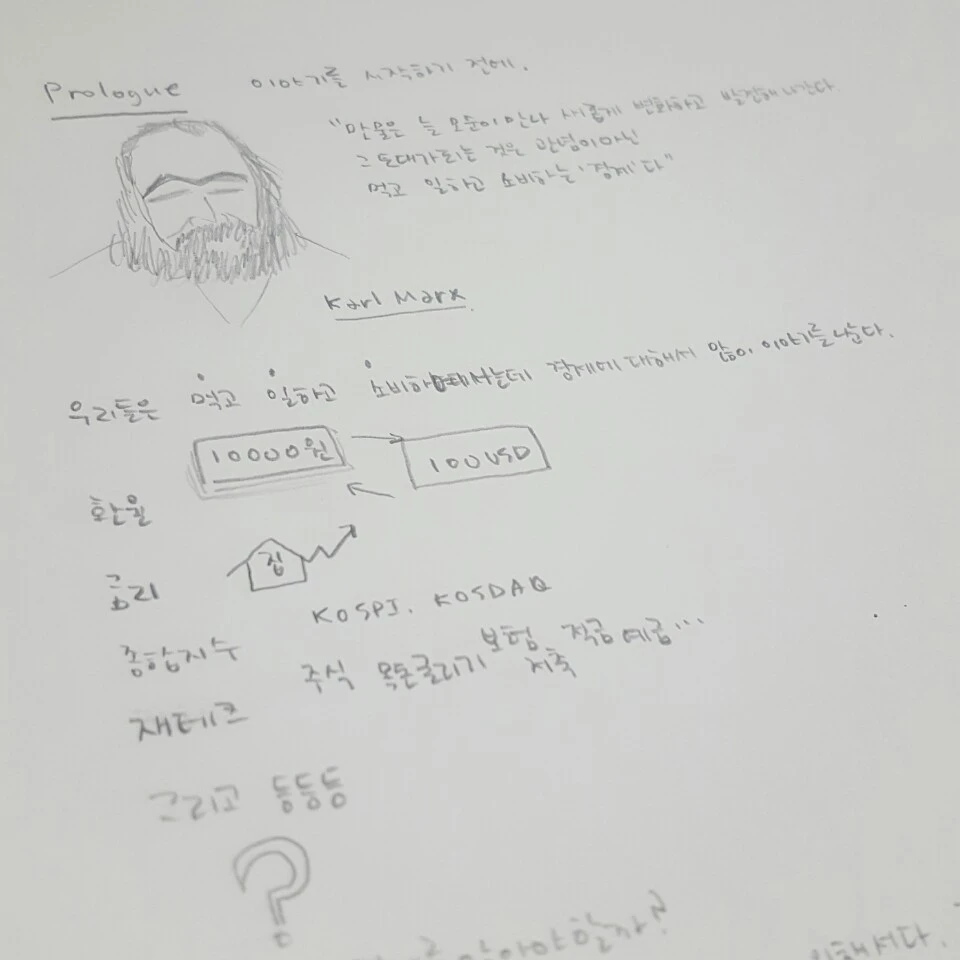 Prologue 이야기를 시작하기 전에.
"만물은 늘 모순이 만나 새롭게 변화하고 발전해나간다.
그 토대가 되는 것은 관념이 아닌
먹고 일하고 소비하는 '경제'다"
Karl Marx.
우리들은 먹고 일하고 소비하 사는데 경제에 대해서 많이 이야기를 나눈다.
10000원 100USD
환율
집
금리
KOSPI. KOSDAQ
종합지수
주식 목돈굴리기 보험 저축 적금 예금...
재테크
그리고 등등등
?
알아야할까?
위해서다.